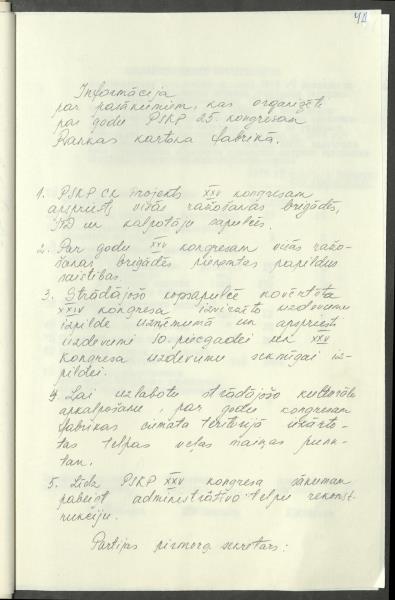 41
Informācija
par pasākumiem, kas organizēti
par godu PSKP 25. kongresam
Rankas kartona fabrikā.
1. PSKP CK projekts XXV kongresam
apspriests visās ražošanas brigādēs,
ITD un kalpotāju sapulcēs.
2. Par godu XXV kongresam visās ražo-
šanas brigādēs pieņemtas papildus
saistības.
3. Strādājošo kopsapulcē novērtēta
XXIV kongresa izvirzīto uzdevumu
izpilde uzņēmumā un apspriesti
uzdevumi 10. piecgadei un XXV
kongresa uzdevumu sekmīgai iz-
pildei.
4. Lai uzlabotu strādājošo kultūrālo
apkalpošanu, par godu kongresam
fabrikas ciemata teritorijā iekārto-
tas telpas veļas maiņas punk-
tam.
5. Līdz PSKP XXV kongresa sākumam
pabeigt administratīvo telpu rekonst-
rukciju.
Partijas pirmorg. sekretārs: